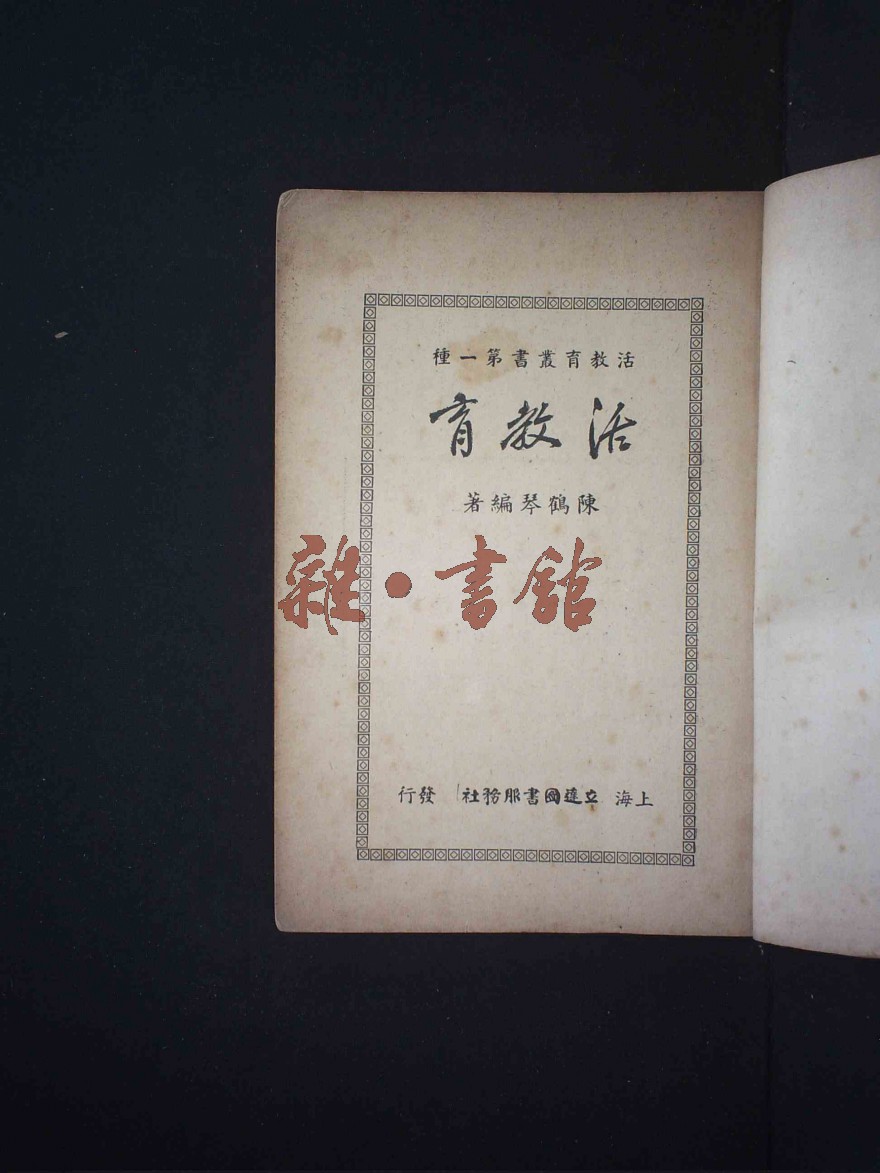 活教育叢書第一種
活教育
陳鶴琴編著
雜·書舘
上海 立達圖書服務社 發行